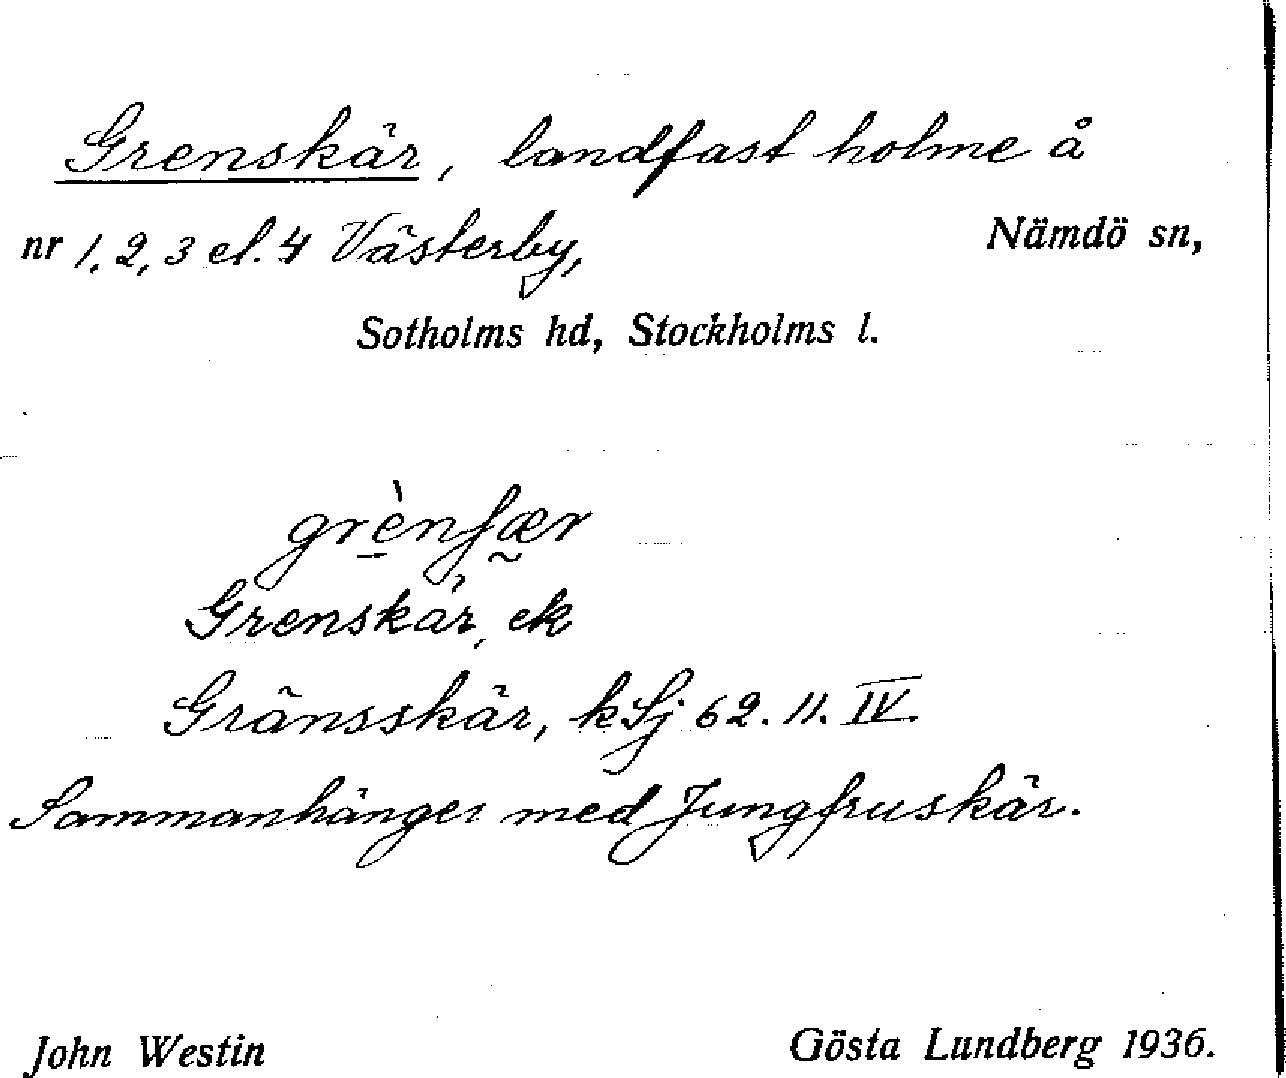 Grenskär, landfast holme å
nr 1, 2, 3 el. 4 Västerby, Nämdö sn,
Sotholms hd, Stockholms l.
grènʃær
Grenskär, ek
Gränsskär, kSj 62. 11. IV.
Sammanhänger med Jungfruskär.
John Westin Gösta Lundberg 1936.